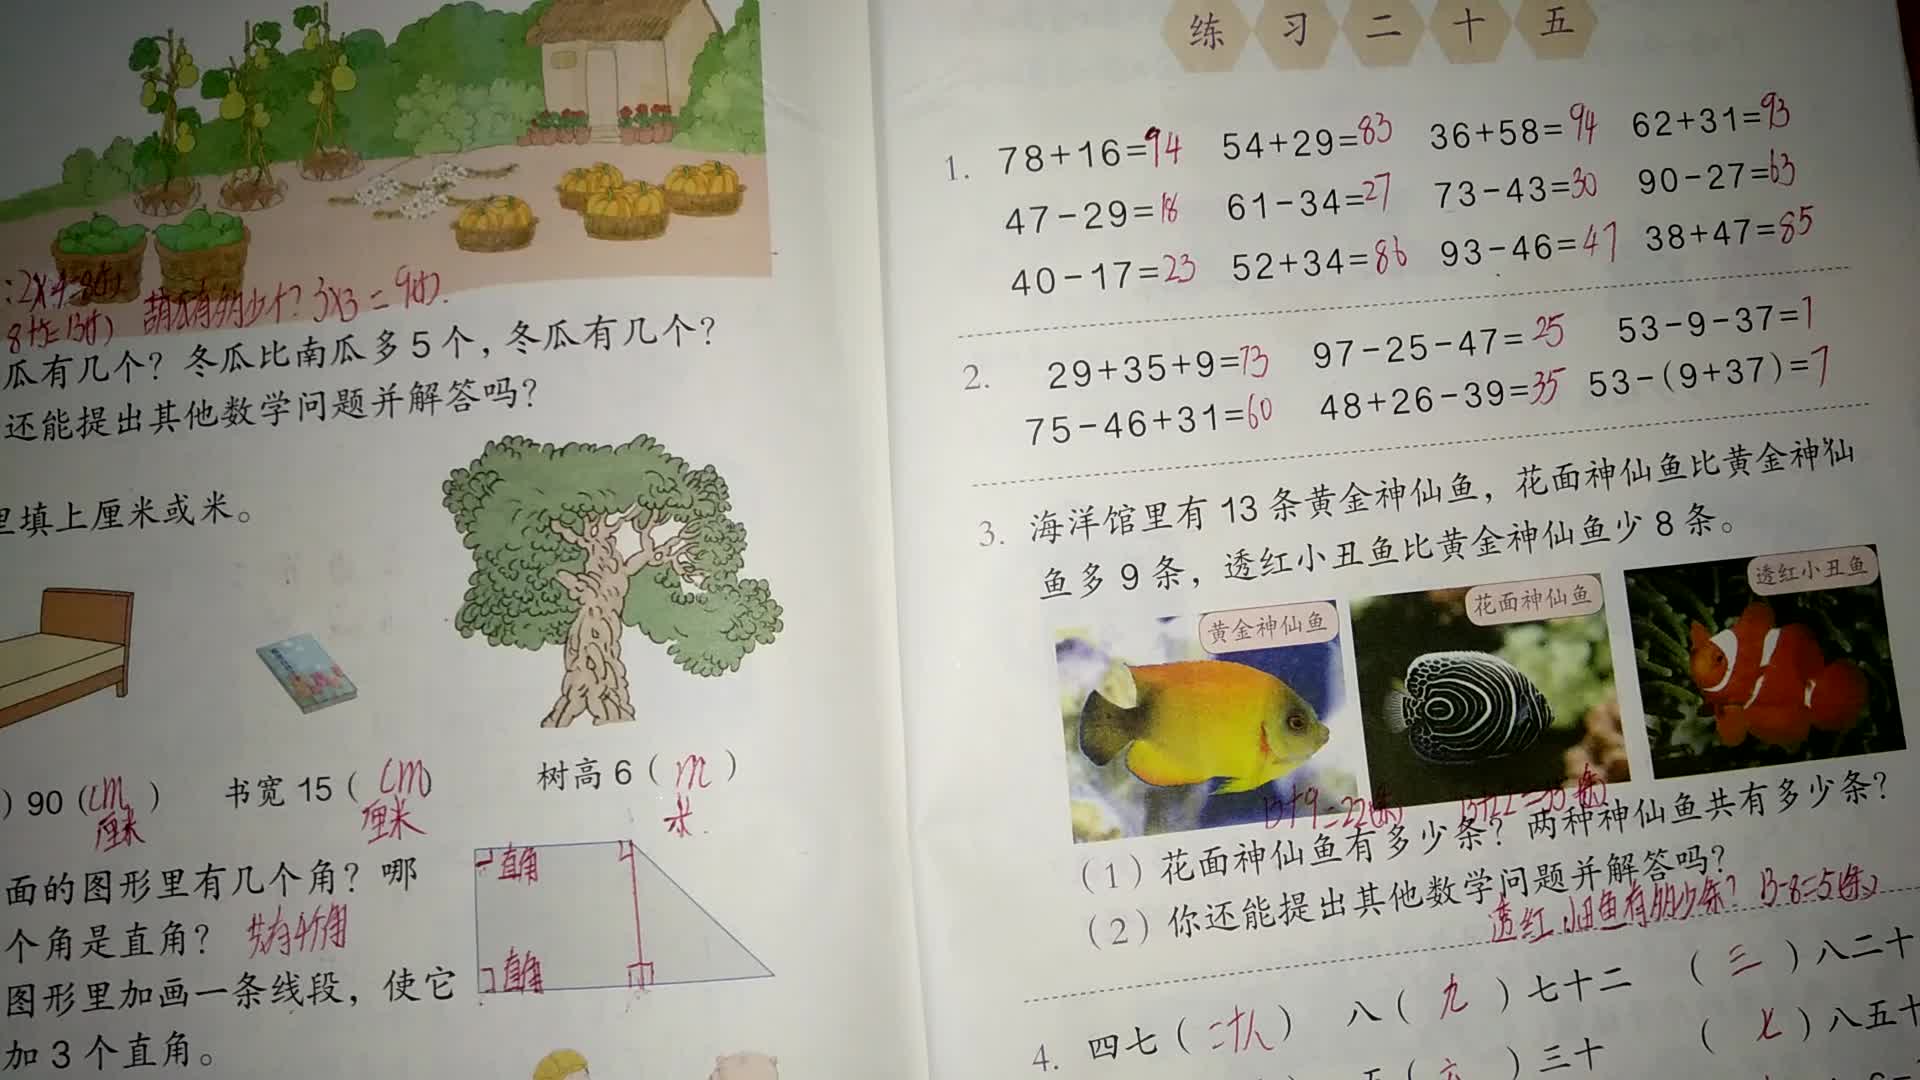 :2×4=8(个)
8+5=13(个) 葫芦有多少个? 3×3=9(个).
瓜有几个? 冬瓜比南瓜多5个,冬瓜有几个?
还能提出其他数学问题并解答吗?
里填上厘米或米。
) 90 (cm)
厘米
书宽 15 (cm)
厘米
树高 6 (m)
米.
面的图形里有几个角? 哪
个角是直角? 共有4个角
直角
直角
图形里加画一条线段,使它
加 3 个直角。
练习二十五
1. 78+16=94 54+29=83 36+58=94 62+31=93
47-29=18 61-34=27 73-43=30 90-27=63
40-17=23 52+34=86 93-46=47 38+47=85
2. 29+35+9=73 97-25-47=25 53-9-37=7
75-46+31=60 48+26-39=35 53-(9+37)=7
3. 海洋馆里有 13 条黄金神仙鱼,花面神仙鱼比黄金神仙
鱼多 9 条,透红小丑鱼比黄金神仙鱼少 8 条。
黄金神仙鱼
花面神仙鱼
透红小丑鱼
13+9=22(条) 13+22=35(条)
(1) 花面神仙鱼有多少条? 两种神仙鱼共有多少条?
(2) 你还能提出其他数学问题并解答吗?
透红小丑鱼有多少条? 13-8=5(条)
4. 四七(二十八) 八(九)七十二 (三)八二十
(六)三十 (七)八五十